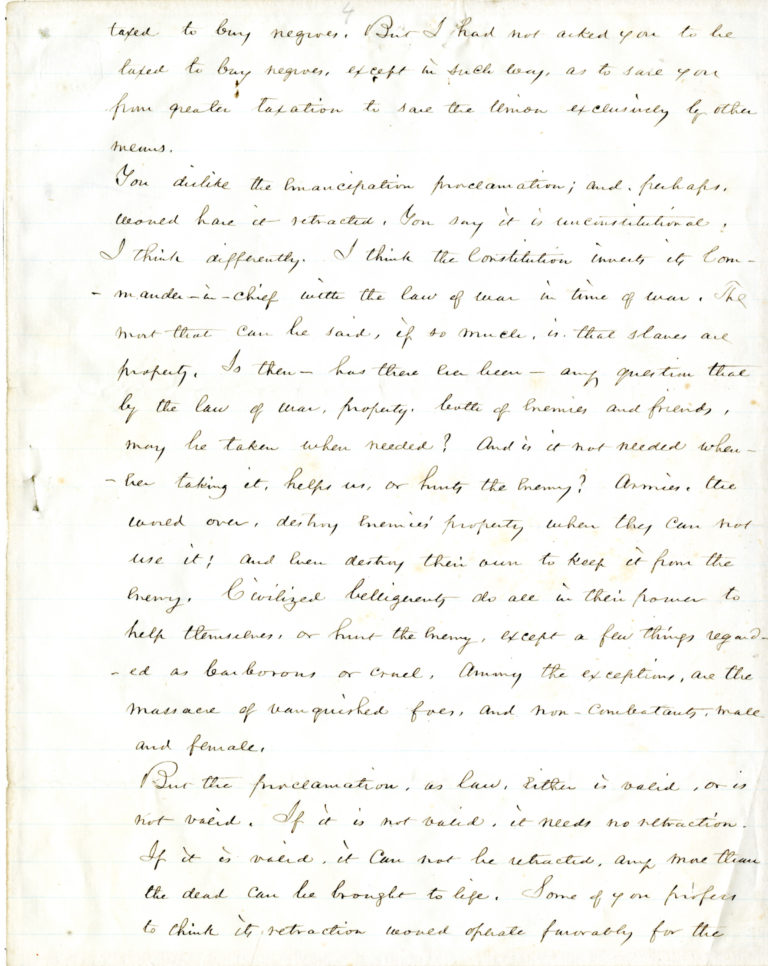 4
taxed to buy negroes. But I had not asked you to be
taxed to buy negroes, except in such way, as to save you
from greater taxation to save the Union exclusively by other
means.
You dislike the Emancipation proclamation; and, perhaps,
would have it retracted. You say it is unconstitutional.
I think differently. I think the Constitution invests its Com-
-mander-in-chief with the law of war in time of war. The
most that can be said, if so much, is that slaves are
property. Is then - has there ever been - any question that
by the law of war, property, both of Enemies and friends,
may be taken when needed? And is it not needed when-
-ever taking it, helps us, or hurts the Enemy? Armies, the
world over, destroy Enemies' property when they can not
use it; and Even destroy their own to keep it from the
Enemy. Civilized belligerents do all in their power to
help themselves, or hurt the Enemy, except a few things regard-
-ed as barborous or cruel. Among the exceptions, are the
massacre of vanquished foes, and non-combatants, male
and female.
But the proclamation, as law, Either is valid, or is
not valid. If it is not valid, it needs no retraction.
If it is valid, it can not be retracted, any more than
the dead can be brought to life. Some of you profess
to think its retraction would operate favorably for the